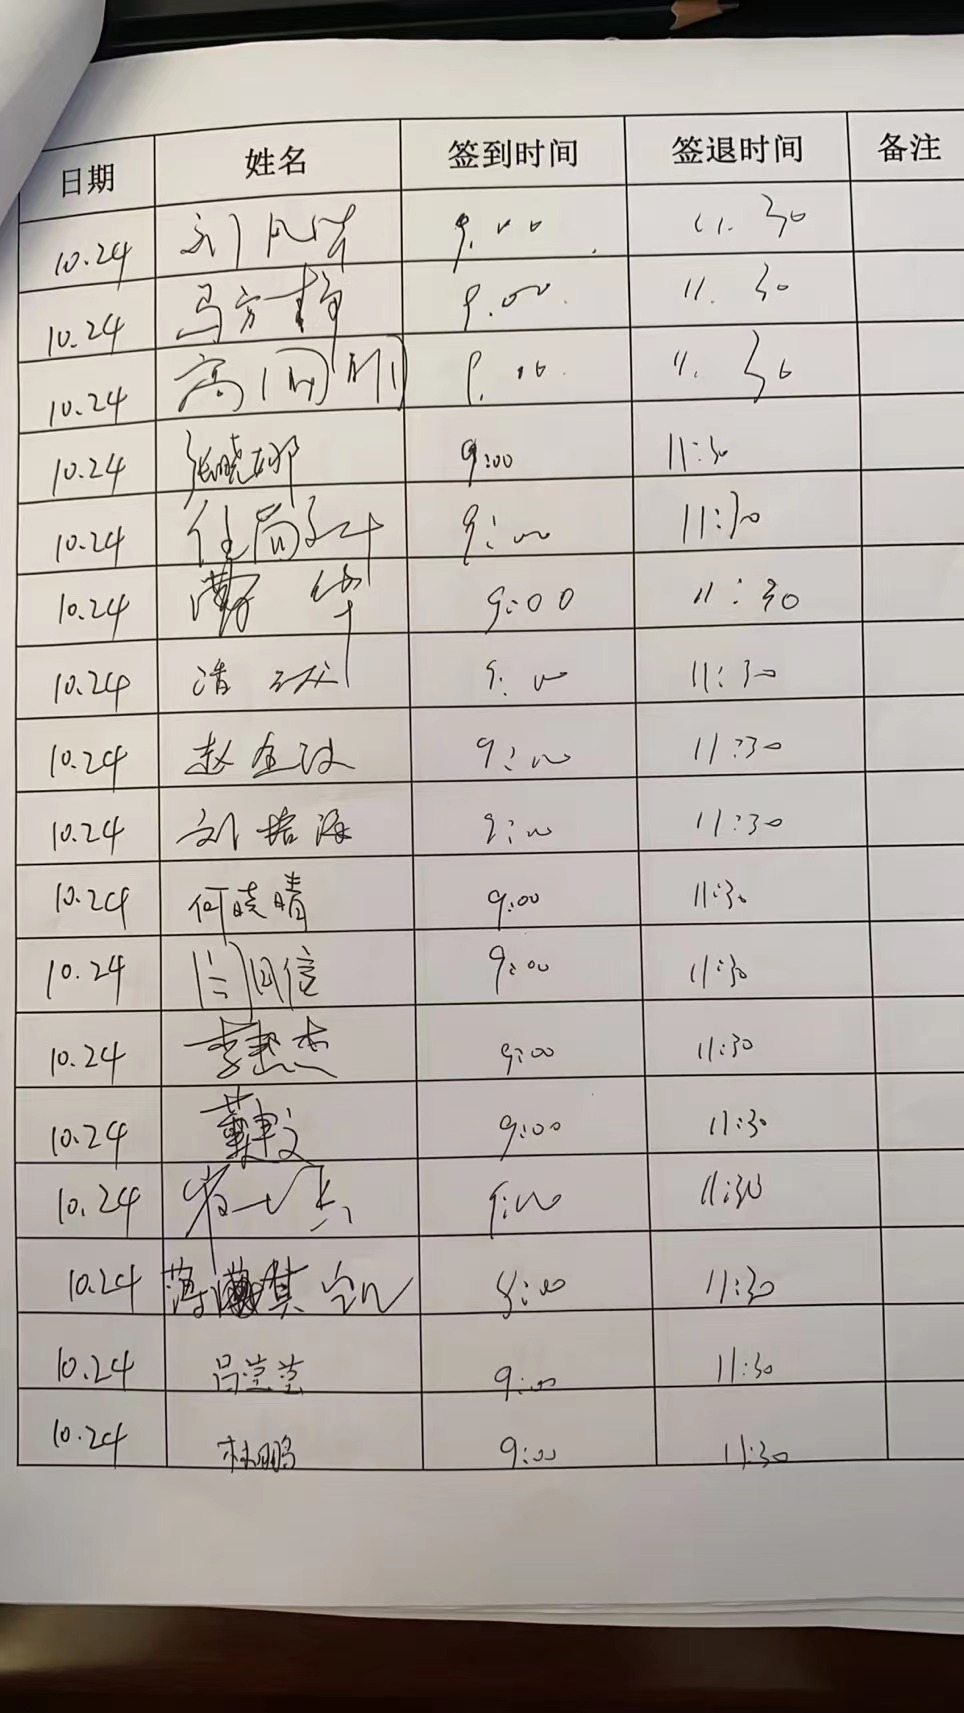 日期 姓名 签到时间 签退时间 备注
10.24 9.00 11.30
10.24 马方 9.00 11.30
10.24 高 9.00 11.30
10.24 张晓娜 9:00 11:30
10.24 9:00 11:30
10.24 华 9:00 11:30
10.24 9:00 11:30
10.24 赵金 9:00 11:30
10.24 刘 海 9:00 11:30
10.24 何晓晴 9:00 11:30
10.24 闫国信 9:00 11:30
10.24 李 杰 9:00 11:30
10.24 9:00 11:30
10.24 9:00 11:30
10.24 薄 9:00 11:30
10.24 吕莹莹 9:00 11:30
10.24 林鹏 9:00 11:30